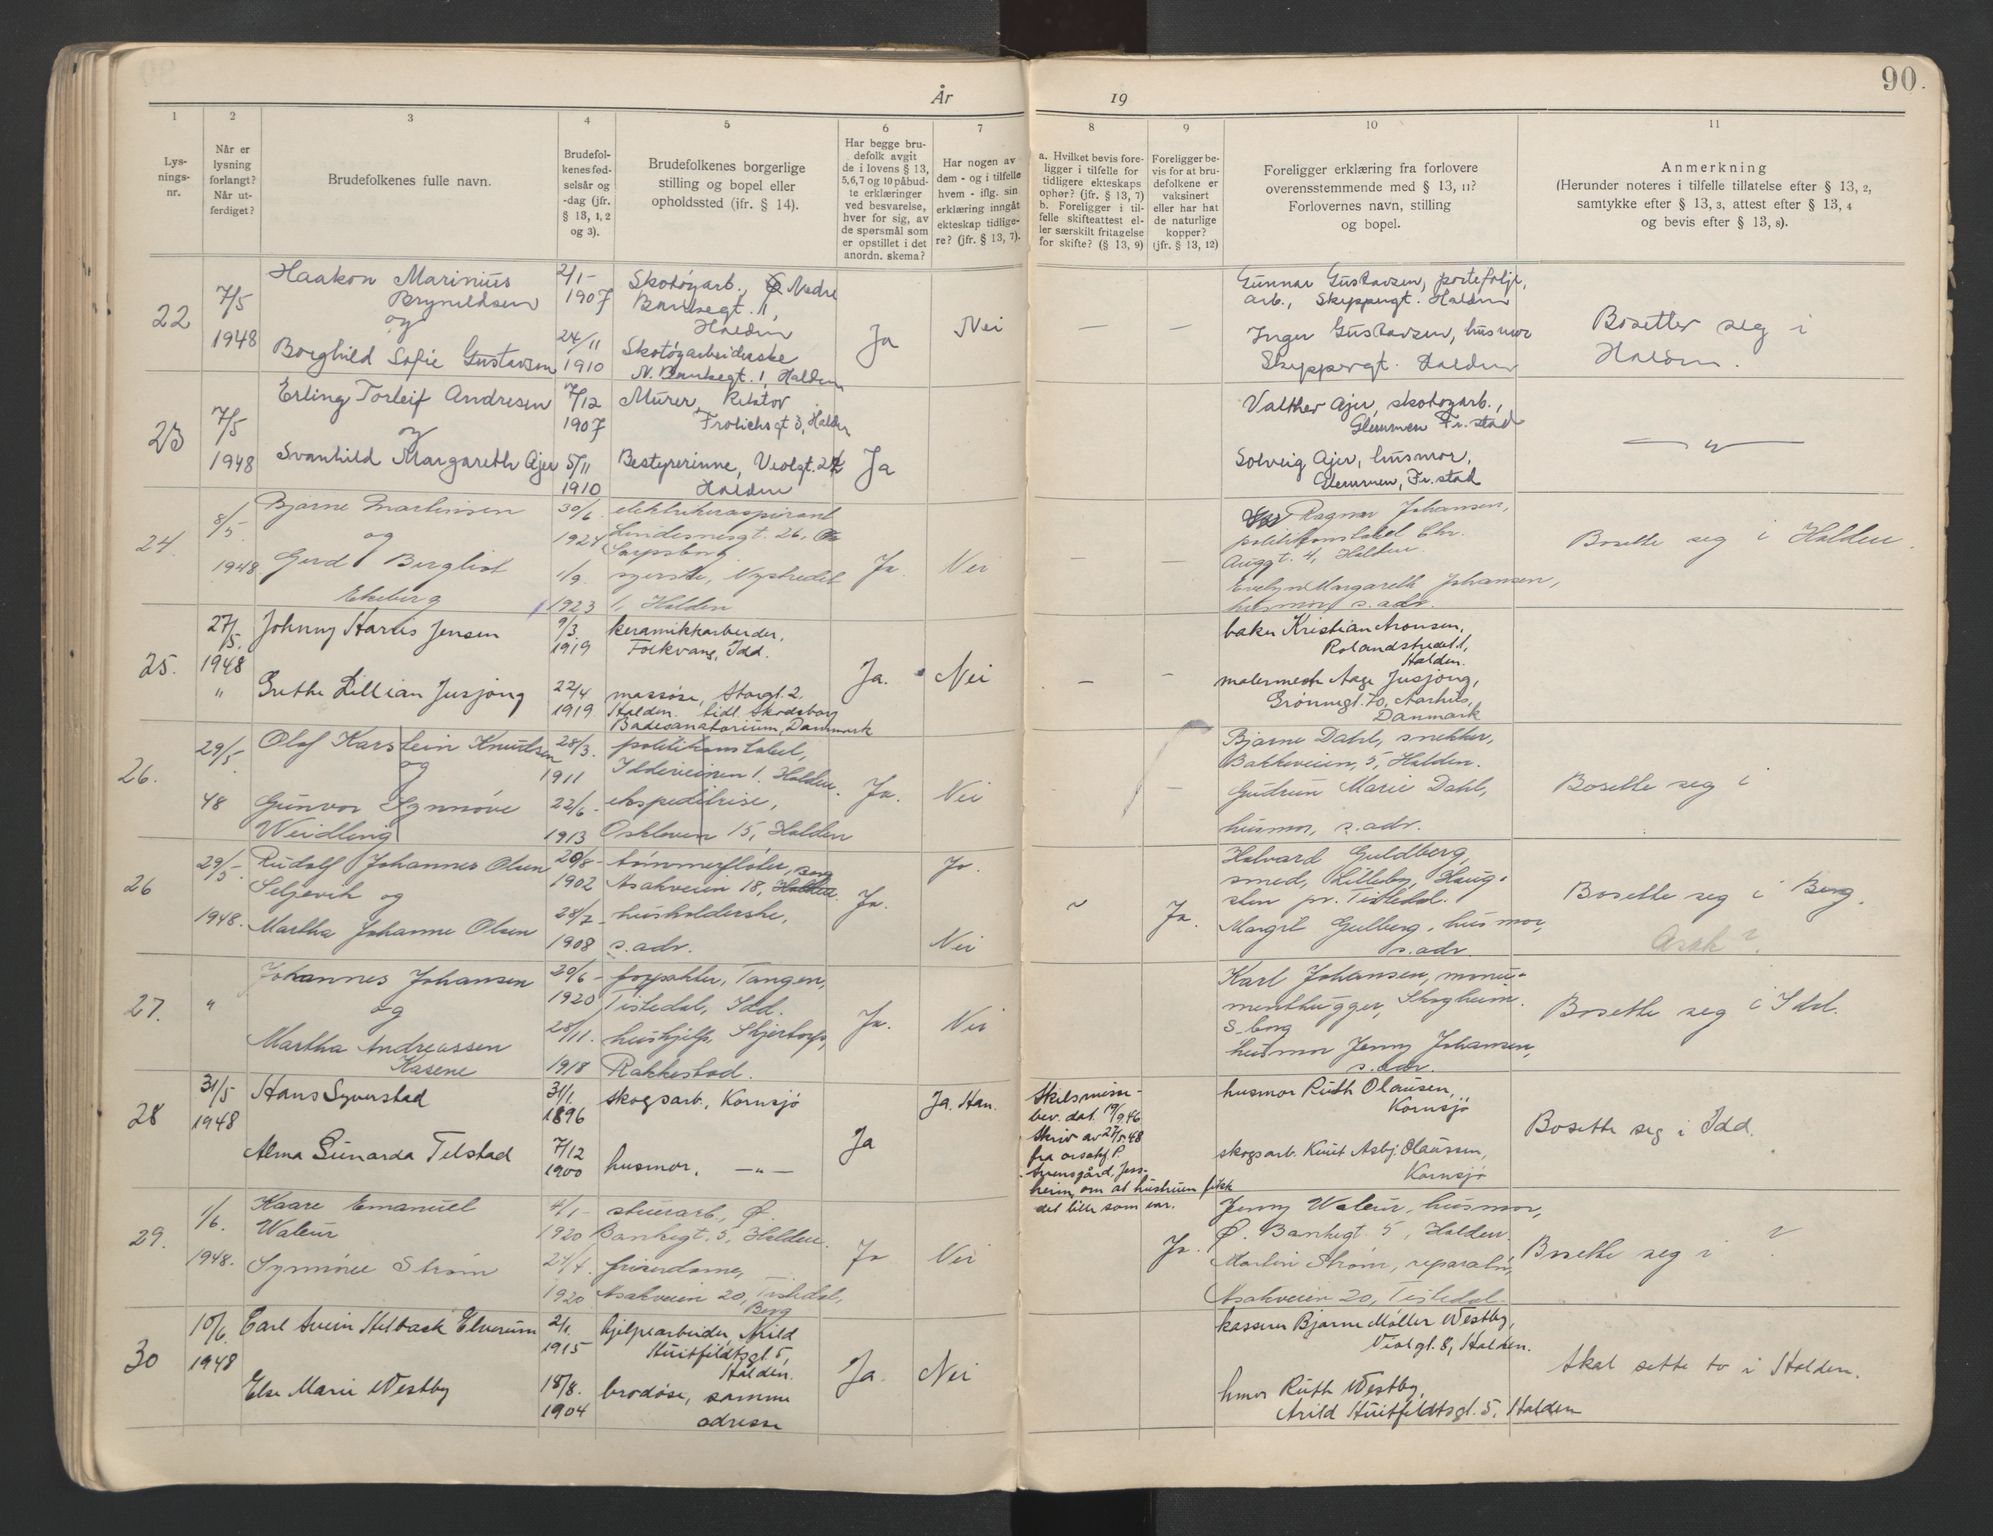 90.
År 19
1
2
3
4
5
6
7
8
9
10
11
Lysningsnr.
Når er lysning forlangt? Når utferdiget?
Brudefolkenes fulle navn.
Brudefolkenes fødselsår og -dag (jfr. § 13, 1, 2 og 3).
Brudefolkenes borgerlige stilling og bopel eller opholdssted (jfr. § 14).
Har begge brudefolk avgit de i lovens § 13, 5, 6, 7 og 10 påbudte erklæringer ved besvarelse, hver for sig, av de spørsmål som er opstillet i det anordn. skema?
Har nogen av dem - og i tilfelle hvem - iflg. sin erklæring inngåt ekteskap tidligere? (jfr. § 13, 7).
a. Hvilket bevis foreligger i tilfelle for tidligere ekteskaps ophør? (jfr. § 13, 7)
b. Foreligger i tilfelle skifteattest eller særskilt fritagelse for skifte? (§ 13, 9)
Foreligger bevis for at brudefolkene er vaksinert eller har hat de naturlige kopper? (jfr. § 13, 12)
Foreligger erklæring fra forlovere overensstemmende med § 13, 11? Forlovernes navn, stilling og bopel.
Anmerkning
(Herunder noteres i tilfelle tillatelse efter § 13, 2, samtykke efter § 13, 3, attest efter § 13, 4 og bevis efter § 13, 8).
22
7/5
1948
Haakon Marinius
Brynildsen
og
Borghild Sofie Gustavsen
2/1-
1907
24/11
1910
Skotøyarb., Nedre
Banksgt. 1,
Halden
Skotøyarbeiderske
N. Banksgt. 1, Halden
Ja
Nei
—
—
Gunnar Gustavsen, portefølje,
arb., Skippergt. Halden
Inger Gustavsen, husmor
Skippergt. Halden
Bosetter seg i
Halden.
23
7/5
1948
Erling Torleif Andresen
og
Svanhild Margareth Ajer
7/12
1907
5/11
1910
Murer,
Frølichsgt 3, Halden
Bestyrerinne, Violgt.
Halden
Ja
Valther Ajer, skotøyarb.,
Glemmen Fr.stad
Solveig Ajer, husmor,
Glemmen, Fr.stad
— " —
24.
8/5-
1948.
Bjarne Martinsen
og
Gerd Bergliot
Ekeberg
30/6
1924
1/9.
1923
elektrikeraspirant
Lindemisgt. 26,
Sarpsborg
syerske, Nystredet
1, Halden
Ja.
Nei
—
—
Ragnar Johansen,
politikonstabel Chr.
Auggt. 4, Halden.
Evelyn Margareth Johansen,
husmor, s. adr.
Bosette seg i Halden.
25.
27/5.
1948
"
Johnny Harris Jensen
Grethe Lillian Jusjong
9/3.
1919
22/4
1919
keramikkarbeider,
Folkvang, Idd.
massøse, Storgt. 2.
Halden. tidl. Skodsborg
Badesanatorium, Danmark
Ja.
Nei
-
-
baker Kristian Aronsen,
Rolandstredet 1,
Halden.
malermest. Aage Jusjong,
Grønnegt. 70, Aarhus,
Danmark
26.
29/5-
48
Olaf Karstein Knudsen
og
Gunvor Synnøve
Weidling
28/3.
1911
22/6-
1913
politikonstabel,
Ilderveien 1. Halden.
ekspeditrise,
Oskleven 15, Halden
Ja.
Nei
Bjarne Dahl, snekker,
Bakkeveien, 5, Halden.
Gudrun Marie Dahl,
husmor, s. adr.
Bosette seg i
26
29/5-
1948.
Rudolf Johannes Olsen
Seljevik og
Martha Johanne Olsen
20/8-
1902
28/7-
1908
tømmerfløter, Berg
Asakveien 18,
husholderske,
s. adr.
Ja.
Ja.
Nei
Ja.
Halvard Guldberg,
smed, Lilleby, Haugsten pr. Tistedal.
Margit Gulberg, husmor,
s. adr.
Bosette seg i Berg.
Asak?
27.
"
Johannes Johansen
og
Martha Andreassen
Kasene
20/6-
1920
28/11.
1918
forpakter, Tangen,
Tistedal, Idd.
hushjelp, Skjertorp,
Rakkestad.
Ja.
Nei
Karl Johansen, monumenthugger, Skogheim.
S-borg
husmor Jenny Johansen,
s. adr.
Bosette seg i Idd.
28
31/5
1948
Hans Syverstad
Alma Gunarda Telstad
31/1.
1896
7/12
1900
skogsarb., Kornsjø
husmor, —"—
Ja
Ja. Han.
Skilsmissebev. dat. 19/9.46
Skriv av 27/5.48
fra orsakf. P.
Svensgård, Jessheim, om at hustruen fikk
det lille som var.
husmor Ruth Olaussen,
Kornsjø
skogsarb. Knut Asbj. Olaussen,
Kornsjø
Bosette seg i Idd.
29.
1/6.
1948.
Kaare Emanuel
Waleur
Synnøve Strøm
4/1-
1920
24/4.
1920
stuerarb., Ø.
Bankegt. 5, Halden.
friserdame,
Asakveien 20, Tistedal,
Berg
Ja
Nei
Ja.
Jenny Waleur, husmor,
Ø. Bankegt. 5, Halden.
Martin Strøm, reparatør,
Asakveien 20, Tistedal
Bosette seg i ?
30
10/6.
1948
Carl Svein Helback Elverum
Else Marie Westby
2/1.
1915
18/8.
1904
hjelpearbeider, Arild
Huitfeldtsgt. 5,
Halden.
brodøse, samme
adresse
Ja.
Nei
kasserer Bjarne Møller Westby,
Violgt. 8, Halden.
hmor Ruth Westby,
Arild Huitfeldtsgt. 5, Halden
Skal sette bo i Halden.